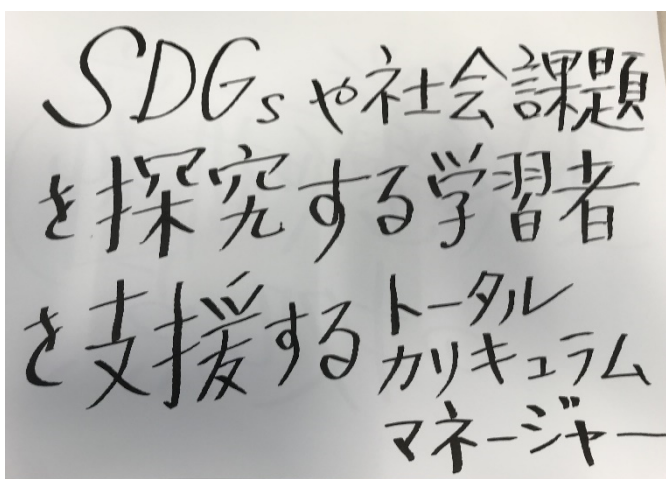 SDGsや社会課題
を探究する学習者
を支援するトータル
カリキュラム
マネージャー